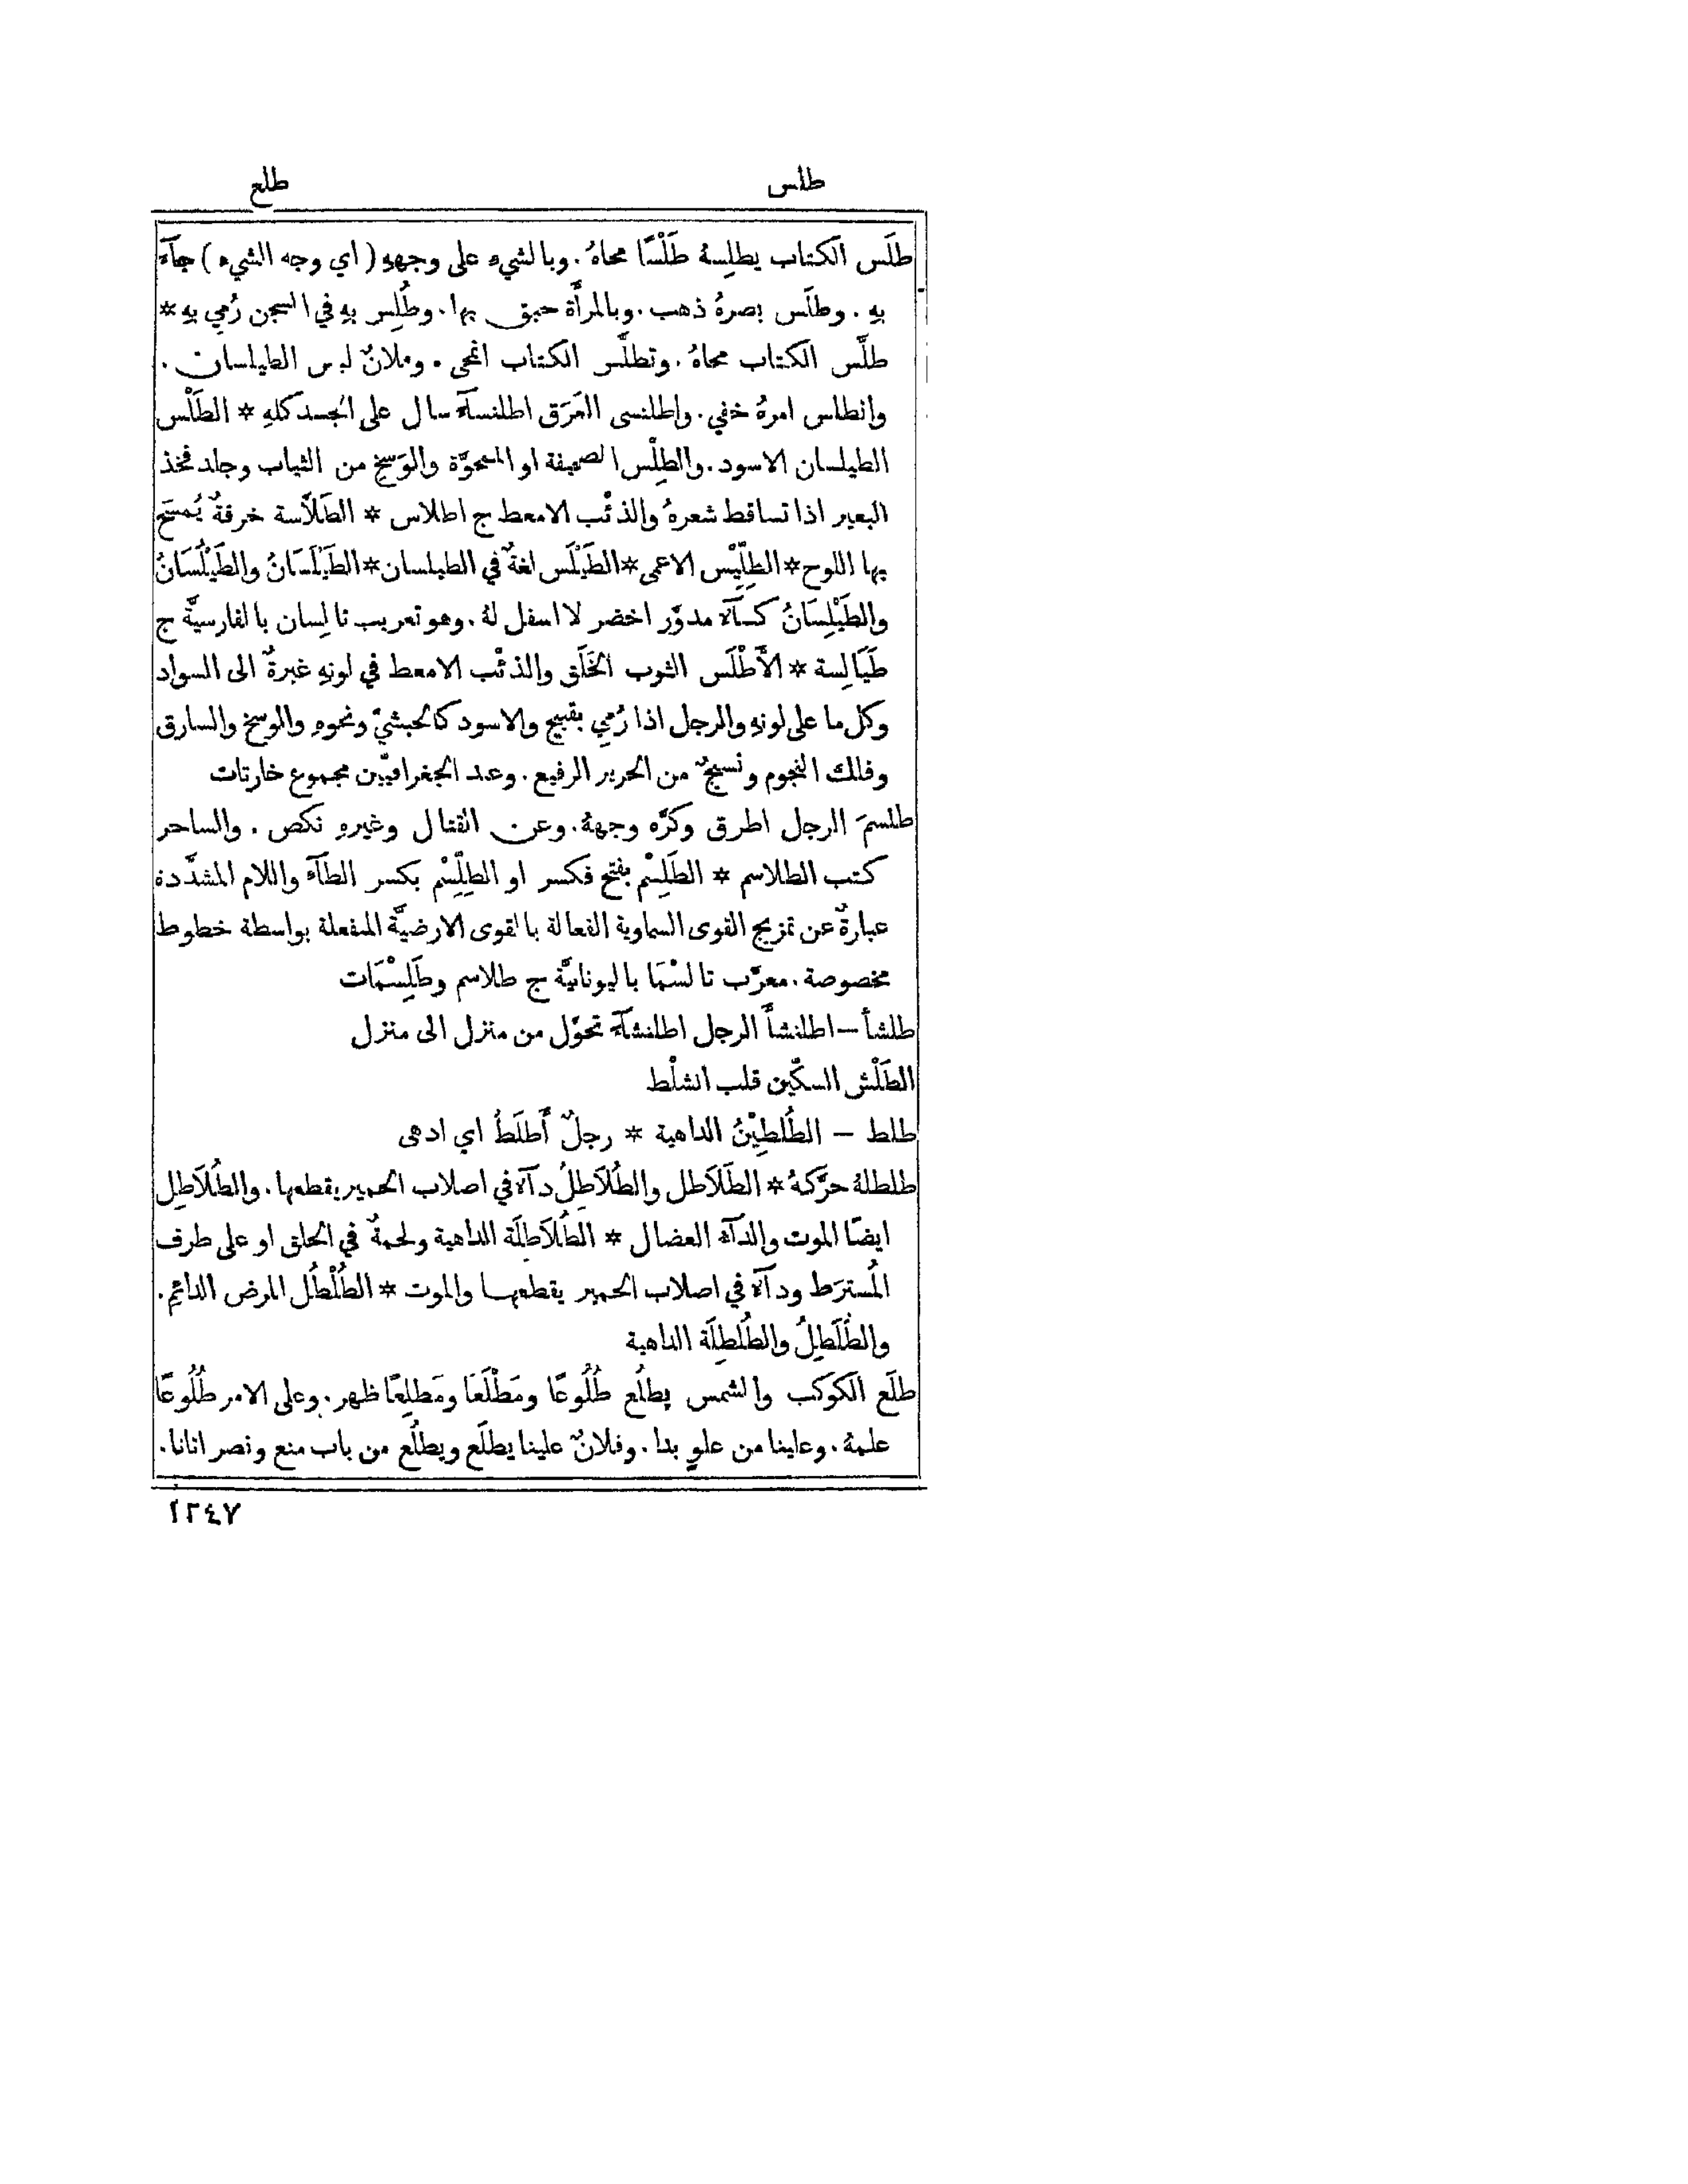 طلس
طلع
طلَس الكتاب يطلِسهُ طَلْسًا محاهُ. وبالشيءِ على وجههِ (اي وجه الشيء) جآءَ
بهِ. وطلَس بصرهُ ذهب. وبالمرأَة حبق بها. وطُلِس بهِ في السجن رُمي بهِ *
طلَّس الكتاب محاهُ. وتطلَّس الكتاب انمحى. وفلانٌ لبس الطيلسان.
وانطلس امرهُ خفي. واطلنسى العَرَق اطلنسآءً سال على الجسد كلهِ * الطَلْس
الطيلسان الاسود. والطِلْس الصحيفة او الممحوَّة والوَسِخ من الثياب وجلد فخذ
البعير اذا تساقط شعرهُ والذئْب الامعط ج اطلاس * الطَلَّاسة خرقةٌ يُمسَح
بها اللوح * الطِلِّيْس الاعمى * الطَيْلَس لغةٌ في الطيلسان * الطَيْلَسَانُ والطَيْلُسَانُ
والطَيْلِسَانُ كسآءٌ مدوَّر اخضر لا اسفل لهُ. وهو تعريب تالِسان بالفارسيَّة ج
طَيَالِسة * الأَطْلَس الثوب الخَلَق والذئْب الامعط في لونهِ غبرةٌ الى السواد
وكل ما على لونهِ والرجل اذا رُمي بقبيح والاسود كالحبشيّ ونحوهِ والوسخ والسارق
وفلك النجوم ونسيجٌ من الحرير الرفيع. وعند الجغرافيّين مجموع خارتات
طلسمَ الرجل اطرق وكرَّه وجههُ. وعن القتال وغيرهِ نكص. والساحر
كتب الطلاسم * الطَلِسْم بفتح فكسر او الطِلِّسْم بكسر الطآء واللام المشدَّدة
عبارةٌ عن تمزيج القوى السماوية الفعالة بالقوى الارضيَّة المنفعلة بواسطة خطوط
مخصوصة. معرَّب تالسْمَا باليونانيَّة ج طلاسم وطَلِسْمَات
طلشأ — اطلنشأَ الرجل اطلنشآءً تحوَّل من منزل الى منزل
الطَلْش السكّين قلب الشلْط
طلط — الطُلطِيْنُ الداهية * رجلٌ أَطلَطُ اي ادهى
طلطلهُ حرَّكهُ * الطَلَاطل والطُلَاطِلُ دآءٌ في اصلاب الحمير يقطعها. والطُلَاطِل
ايضًا الموت والدآء العضال * الطُلَاطِلَة الداهية ولحمةٌ في الحلق او على طرف
المُسترَط ودآءٌ في اصلاب الحمير يقطعها والموت * الطُلْطُل المرض الدائم.
والطُلَطِلُ والطُلَطِلَة الداهية
طلَع الكوكب والشمس يطلُع طُلُوعًا ومَطْلَعًا ومَطلِعًا ظهر. وعلى الامر طُلُوعًا
علمهُ. وعلينا من علوٍ بدا. وفلانٌ علينا يطلَع ويطلُع من باب منع ونصر اتانا.
١٢٤٧